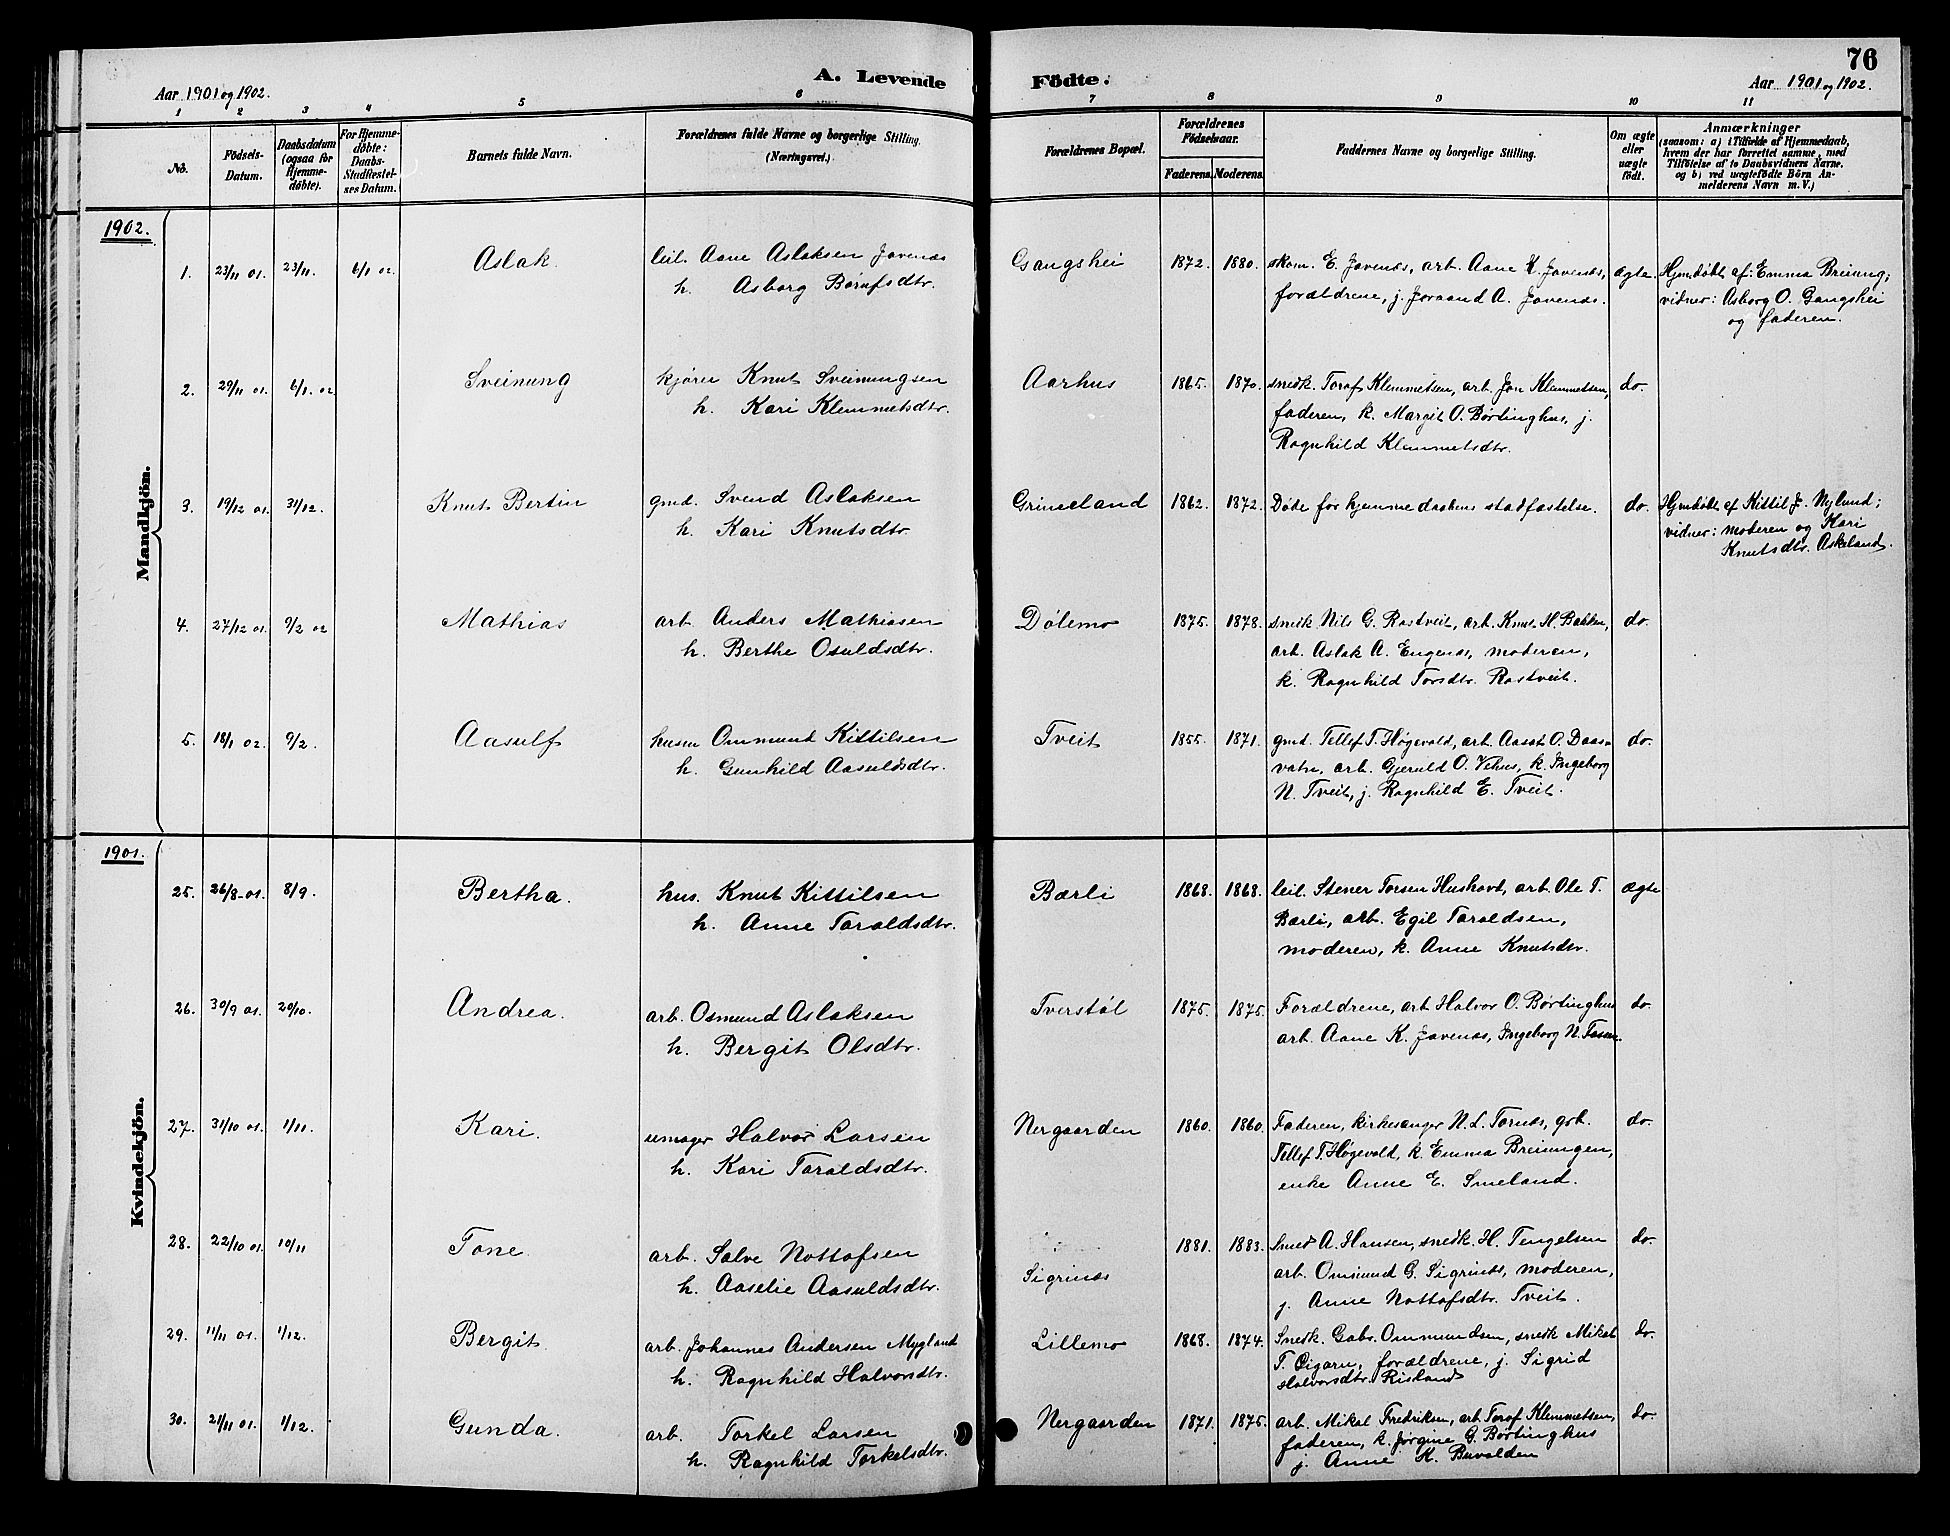 76
A. Levende Födte.
Aar 1901 og 1902.
Aar 1901 og 1902.
1 2 3 4 5 6 7 8 9 10 11
No.
Födsels-Datum.
Daabsdatum (ogsaa for Hjemme-döbte).
For Hjemme-döbte: Daabs-Stadfæstel-ses Datum.
Barnets fulde Navn.
Forældrenes fulde Navne og borgerlige Stilling. (Næringsvei.)
Forældrenes Bopæl.
Forældrenes Födselsaar.
Faderens. Moderens.
Faddernes Navne og borgerlige Stilling.
Om ægte eller uægte födt.
Anmærkninger
(saasom: a) i Tilfælde af Hjemmedaab,
hvem der har forrettet samme, med
Tilföielse af to Daabsvidners Navne,
og b) ved uægtefödte Börn An-
melderens Navn m. V.)
1902.
Mandkjön.
1. 23/11 01. 23/11. 6/1 02. Aslak. leil. Aane Aslaksen Jovenæs Gangshei 1872. 1880. skom. E. Jovenæs, arb. Aane K. Jovenæs, ægte. Hjmdøbt af: Emma Breiung;
h. Asborg Børufsdtr. forældrene, j. Joraand A. Jovenæs. vidner: Asborg O. Gangshei
og faderen.
2. 29/11 01. 6/1. 02 Sveinung kjører Knut Sveinungsen Aarhus 1865. 1870. snedk. Toraf Klemmetsen, arb. Jon Klemmetsen, do.
h. Kari Klemmetsdtr. faderen, k. Margit O. Børtinghus, j.
Ragnhild Klemmetsdtr.
3. 19/12 01. 31/12. Knut Bertin gmd. Svend Aslaksen Grimeland 1862. 1872. Døde før hjemmedaabens stadfæstelse. do. Hjmdøbt af Kittil J. Nylund;
h. Kari Knutsdtr. vidner: moderen og Kari
Knutsdtr. Askeland.
4. 27/12 01. 9/2 02 Mathias arb. Anders Mathiasen Dølemo 1875. 1878. snedk Nils G. Rostveit, arb. Knut H. Bakken, do.
h. Berthe Osuldsdtr. arb. Aslak A. Engenes, moderen,
k. Ragnhild Torsdtr. Rostveit.
5. 18/1 02. 9/2. Aasulf husm Ommund Kittilsen Tveit 1855. 1871. gmd. Tellef T. Høgevold, arb. Aasat O. Daas- do.
h. Gunhild Aasuldsdtr. vatn, arb. Gjeruld O. Vehus, k. Ingeborg
N. Tveit, j. Ragnhild E. Tveit.
1901.
Kvindekjön.
25. 26/8-01. 8/9. Bertha. hus. Knut Kittilsen Bærli 1868. 1868. leil. Stener Torsen Hushovd, arb. Ole T. ægte
h. Anne Taraldsdtr. Bærli, arb. Egil Taraldsen,
moderen, k. Anne Knutsdtr.
26. 30/9 01. 20/10. Andrea. arb. Osmund Aslaksen Tverstøl 1875. 1875. Forældrene, arb Halvor O. Børtinghus do.
h. Bergit Olsdtr. arb. Aane K. Jovenæs, Ingeborg N.
27. 31/10 01. 1/11. Kari. urmager Halvor Larsen Nergaarden 1860. 1860. Faderen, kirkesanger N. L. Tornes, grb. do.
h. Kari Taraldsdtr. Tellef T. Høgevold, k. Emma Breiungen,
enke Anne E. Smeland.
28. 22/10 01. 10/11 Tone. arb. Salve Nottofsen Sigrinæs 1881. 1883. Smed A. Hansen, snedk. H. Tengelsen do.
h. Aaselie Aasuldsdtr. arb. Ommund G. Sigrinæs, moderen,
j. Anne Nottofsdtr. Tveit.
29. 11/11 01. 1/12. Bergit. arb. Johannes Andersen Mygland Lillemo 1868. 1874. Snedk. Gabr. Ommundsen, snedk Mikal do.
h. Ragnhild Halvorsdtr. T. Oigarn, forældrene, j. Sigrid
Halvorsdtr. Risland
30. 21/11 01. 1/12. Gunda. arb. Torkel Larsen Nergaarden 1871. 1875. arb. Mikal Fredriksen, arb. Toraf Klemmetsen, do.
h. Ragnhild Torkelsdtr. faderen, k. Jørgine G. Børtinghus
j. Anne K. Buvolden